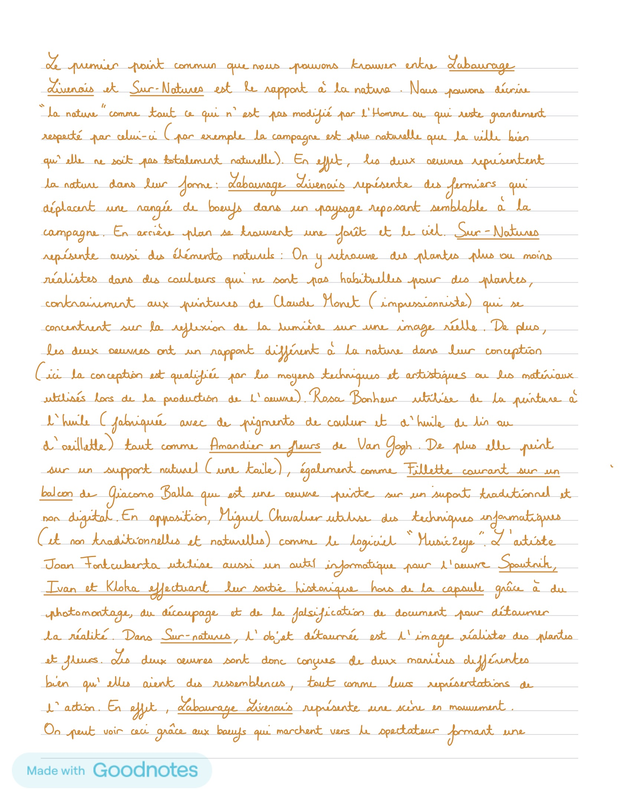 Le premier point commun que nous pouvons trouver entre Labourage
Livenais et Sur-Natures est le rapport à la nature. Nous pouvons décrire
"la nature" comme tout ce qui n'est pas modifié par l'Homme ou qui reste grandement
respecté par celui-ci (par exemple la campagne est plus naturelle que la ville bien
qu'elle ne soit pas totalement naturelle). En effet, les deux oeuvres représentent
la nature dans leur forme : Labourage Livenais représente des fermiers qui
déplacent une rangée de boeufs dans un paysage reposant semblable à la
campagne. En arrière plan se trouvent une forêt et le ciel. Sur-Natures
représente aussi des éléments naturels : On y retrouve des plantes plus ou moins
réalistes dans des couleurs qui ne sont pas habituelles pour des plantes,
contrairement aux peintures de Claude Monet (impressionniste) qui se
concentrent sur la reflexion de la lumière sur une image réelle. De plus,
les deux oeuvres ont un rapport différent à la nature dans leur conception
(ici la conception est qualifiée par les moyens techniques et artistiques ou les matériaux
utilisés lors de la production de l'oeuvre). Rosa Bonheur utilise de la peinture à
l'huile (fabriquée avec de pigments de couleur et d'huile de lin ou
d'oeillette) tout comme Amandier en fleurs de Van Gogh. De plus elle peint
sur un support naturel (une toile), également comme Fillette courant sur un
balcon de Giacomo Balla qui est une oeuvre peinte sur un suport traditionnel et
non digital. En opposition, Miguel Chevalier utilise des techniques informatiques
(et non traditionnelles et naturelles) comme le logiciel "Music2eye". L'artiste
Joan Fontcuberta utilise aussi un outil informatique pour l'oeuvre Spoutnik,
Ivan et Kloka effectuant leur sortie historique hors de la capsule grâce à du
photomontage, du découpage et de la falsification de document pour détourner
la réalité. Dans Sur-natures, l'objet détournée est l'image réaliste des plantes
et fleurs. Les deux oeuvres sont donc conçues de deux manières différentes
bien qu'elles aient des ressemblences, tout comme leurs représentations de
l'action. En effet, Labourage Livenais représente une scène en mouvement.
On peut voir ceci grâce aux boeufs qui marchent vers le spectateur formant une
Made with Goodnotes